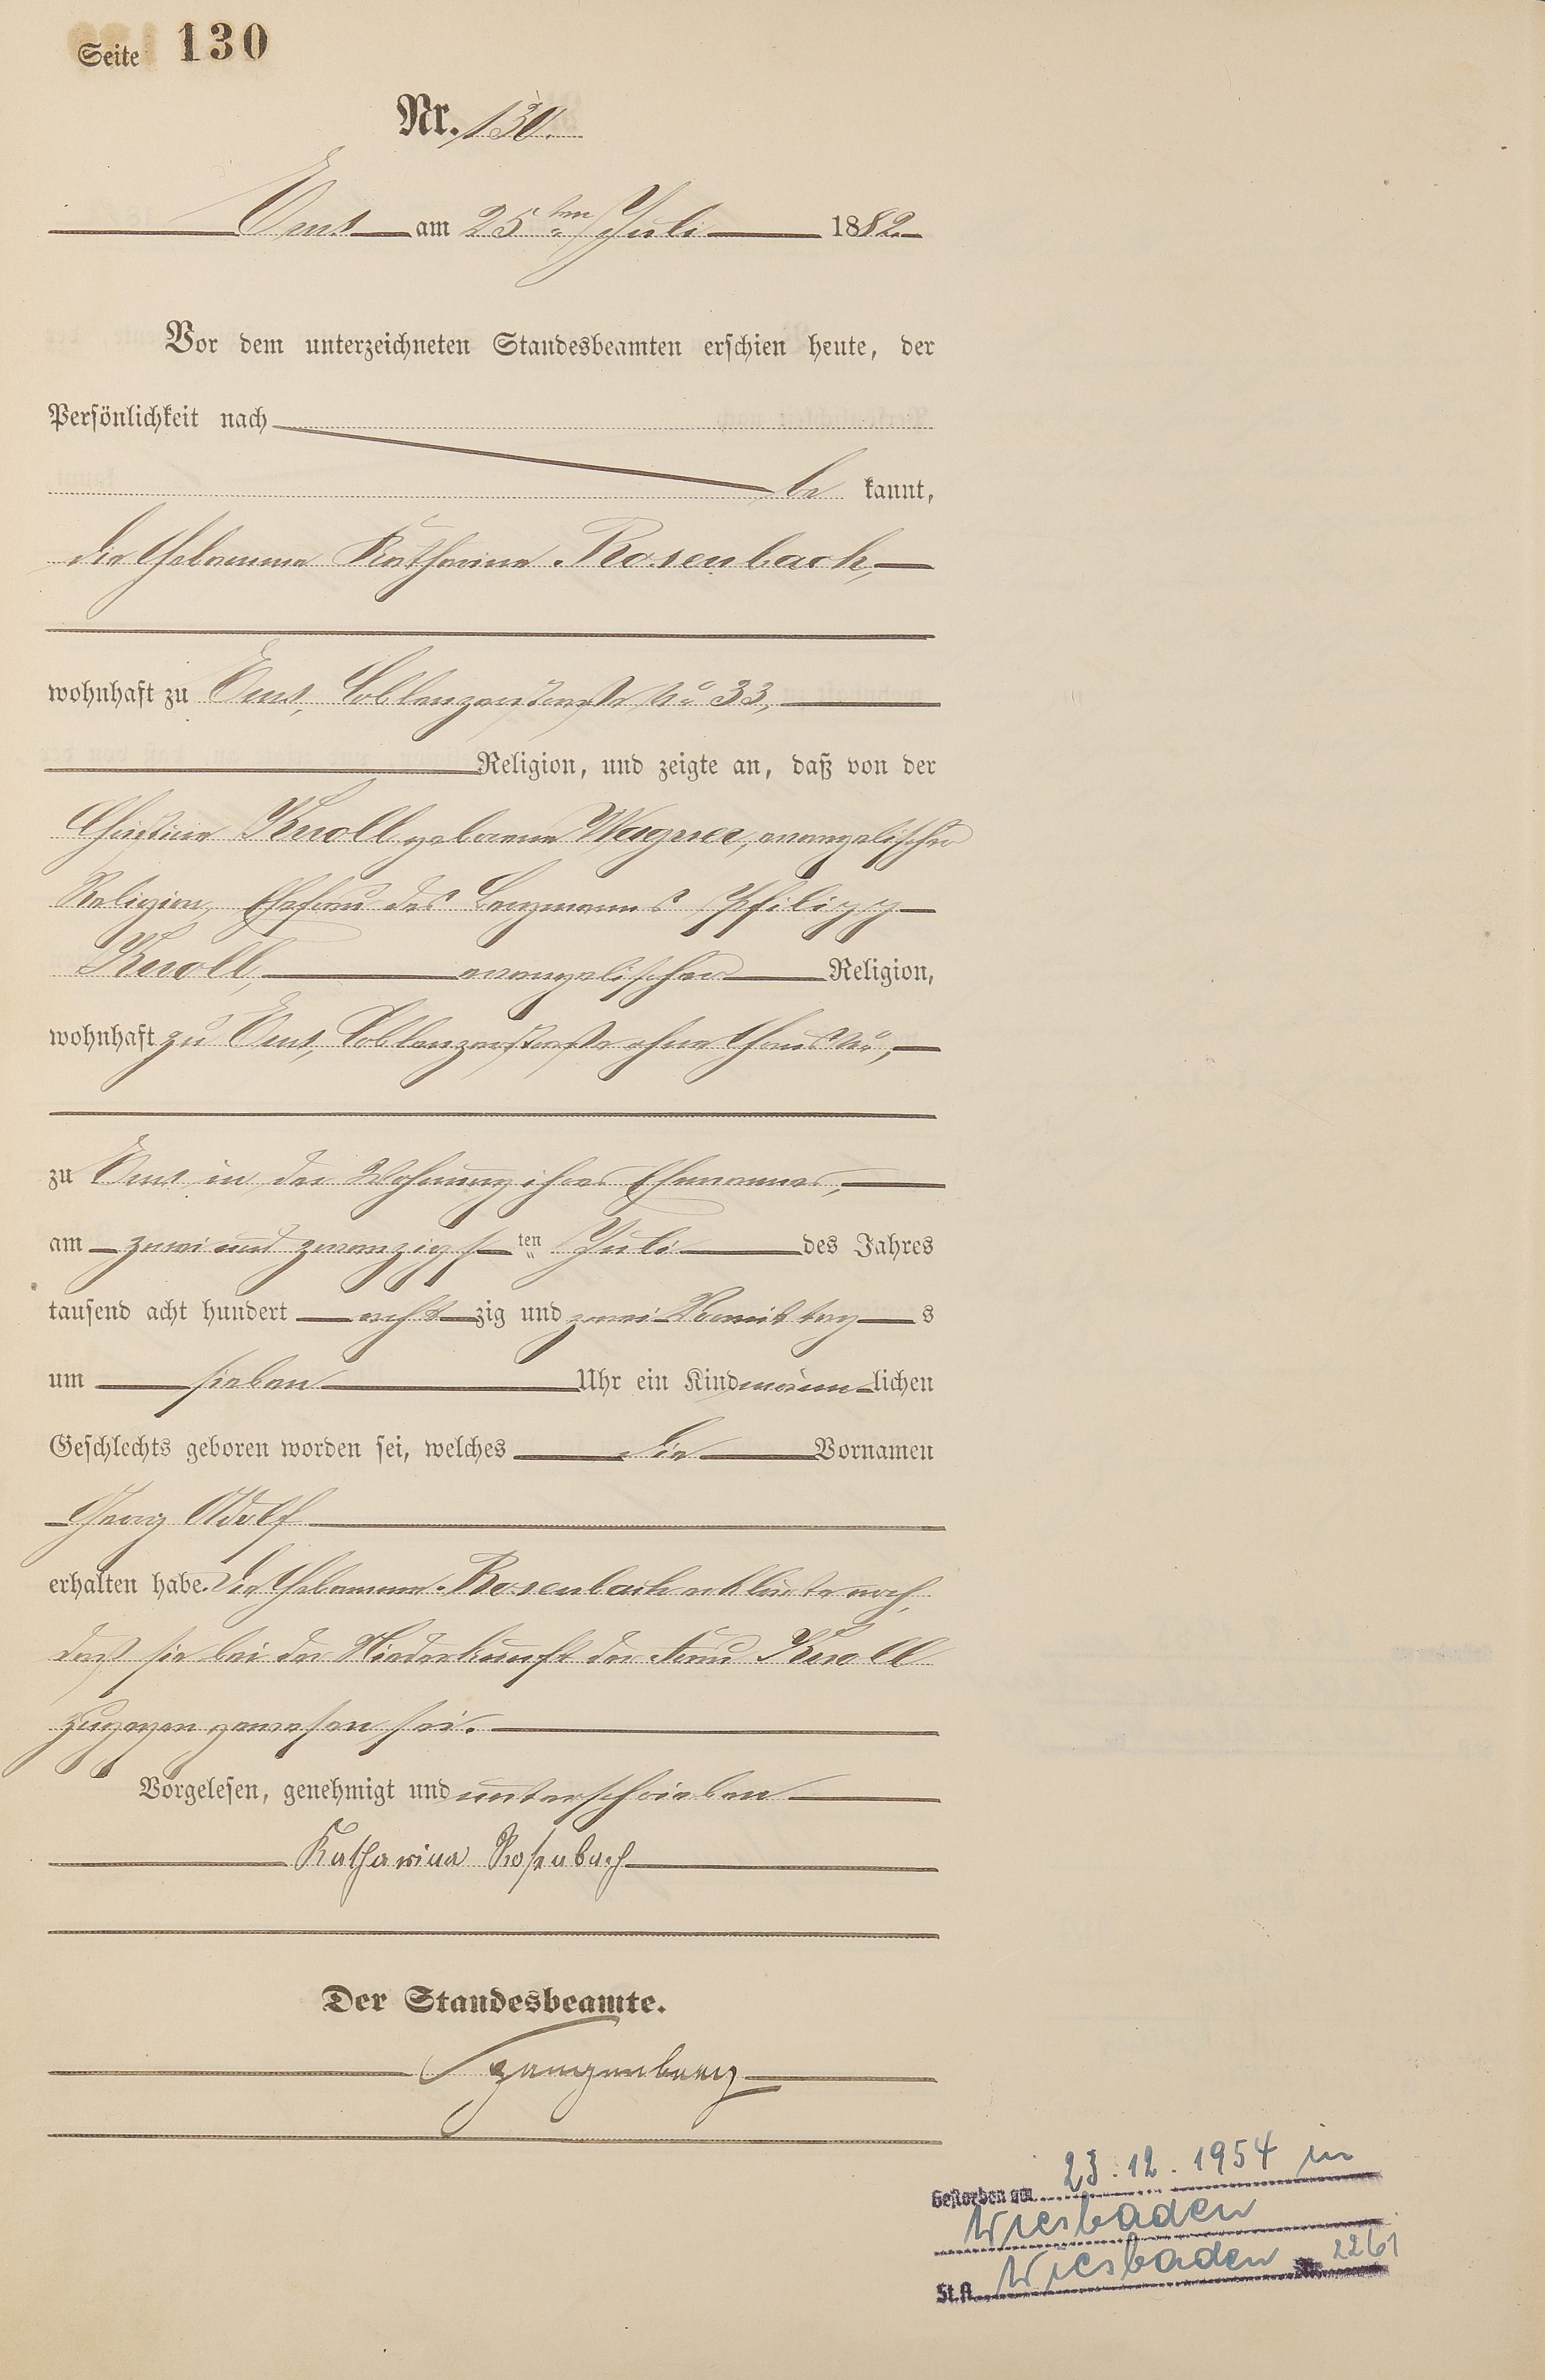 Seite 130
Nr. 130.
Ems am 25ten Juli 1882.
Vor dem unterzeichneten Standesbeamten erschien heute, der
Persönlichkeit nach
be kannt,
die Hebamme Katharina Rosenbach,
wohnhaft zu Ems, Coblenzerstraße No 33,
Religion, und zeigte an, daß von der
Christine Knoll geborene Wagner, evangelischer
Religion, Ehefrau des Bergmanns Philipp
Knoll, evangelischer Religion,
wohnhaft zu Ems, Coblenzerstraße ohne Haus No,
zu Ems in der Wohnung ihres Ehemannes,
am zwei und zwanzigsten Juli des Jahres
tausend acht hundert achtzig und zwei Vormittags
um sieben Uhr ein Kind männlichen
Geschlechts geboren worden sei, welches die Vornamen
Georg Adolf
erhalten habe. Die Hebamme Rosenbach erklärte noch,
daß sie bei der Niederkunft der Frau Knoll
zugegen gewesen sei.
Vorgelesen, genehmigt und unterschrieben
Katharina Rosenbach
Der Standesbeamte.
Spangenberg
Gestorben am 23.12.1954 in
Wiesbaden
St.A. Wiesbaden Nr. 2261